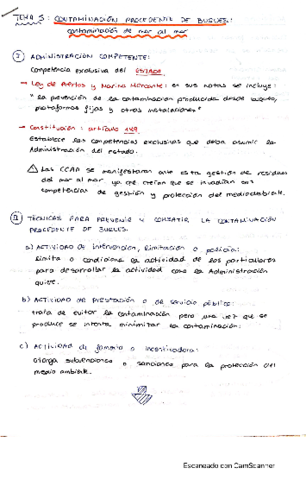 TEMA 5: CONTAMINACIÓN PROCEDENTE DE BUQUES:
contaminación de mar al mar
① ADMINISTRACIÓN COMPETENTE:
Competencia exclusiva del ESTADO
→ Ley de Puertos y Marina Mercante: en sus notas se incluye:
"la prevención de la contaminación producida desde buques,
plataformas fijas y otras instalaciones"
→ Constitución: artículo 149
Establece las competencias exclusivas que debe asumir la
Administración del estado.
⚠ Las CCAA se manifestaron ante esta gestión de residuos
del mar al mar ya que creían que se invadían sus
competencias de gestión y protección del medioambiente.
② TÉCNICAS PARA PREVENIR Y COMBATIR LA CONTAMINACIÓN
PROCEDENTE DE BUQUES.
a) ACTIVIDAD de intervención, limitación o policial:
limita o condiciona la actividad de los particulares
para desarrollar la actividad como la Administración
quiere.
b) ACTIVIDAD DE PRESTACIÓN o de servicio público:
trata de evitar la contaminación pero una vez que se
produce se intenta minimizar la contaminación.
c) ACTIVIDAD de fomento o incentivadora:
otorga subvenciones o sanciones para la protección del
medio ambiente.
Escaneado con CamScanner